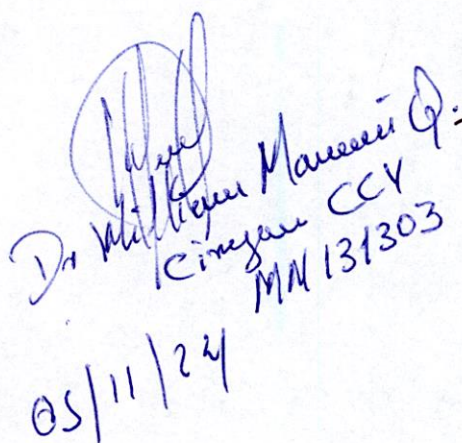 Dr William Mamani Q.
Cirujano CCV
MN 131303
05/11/24